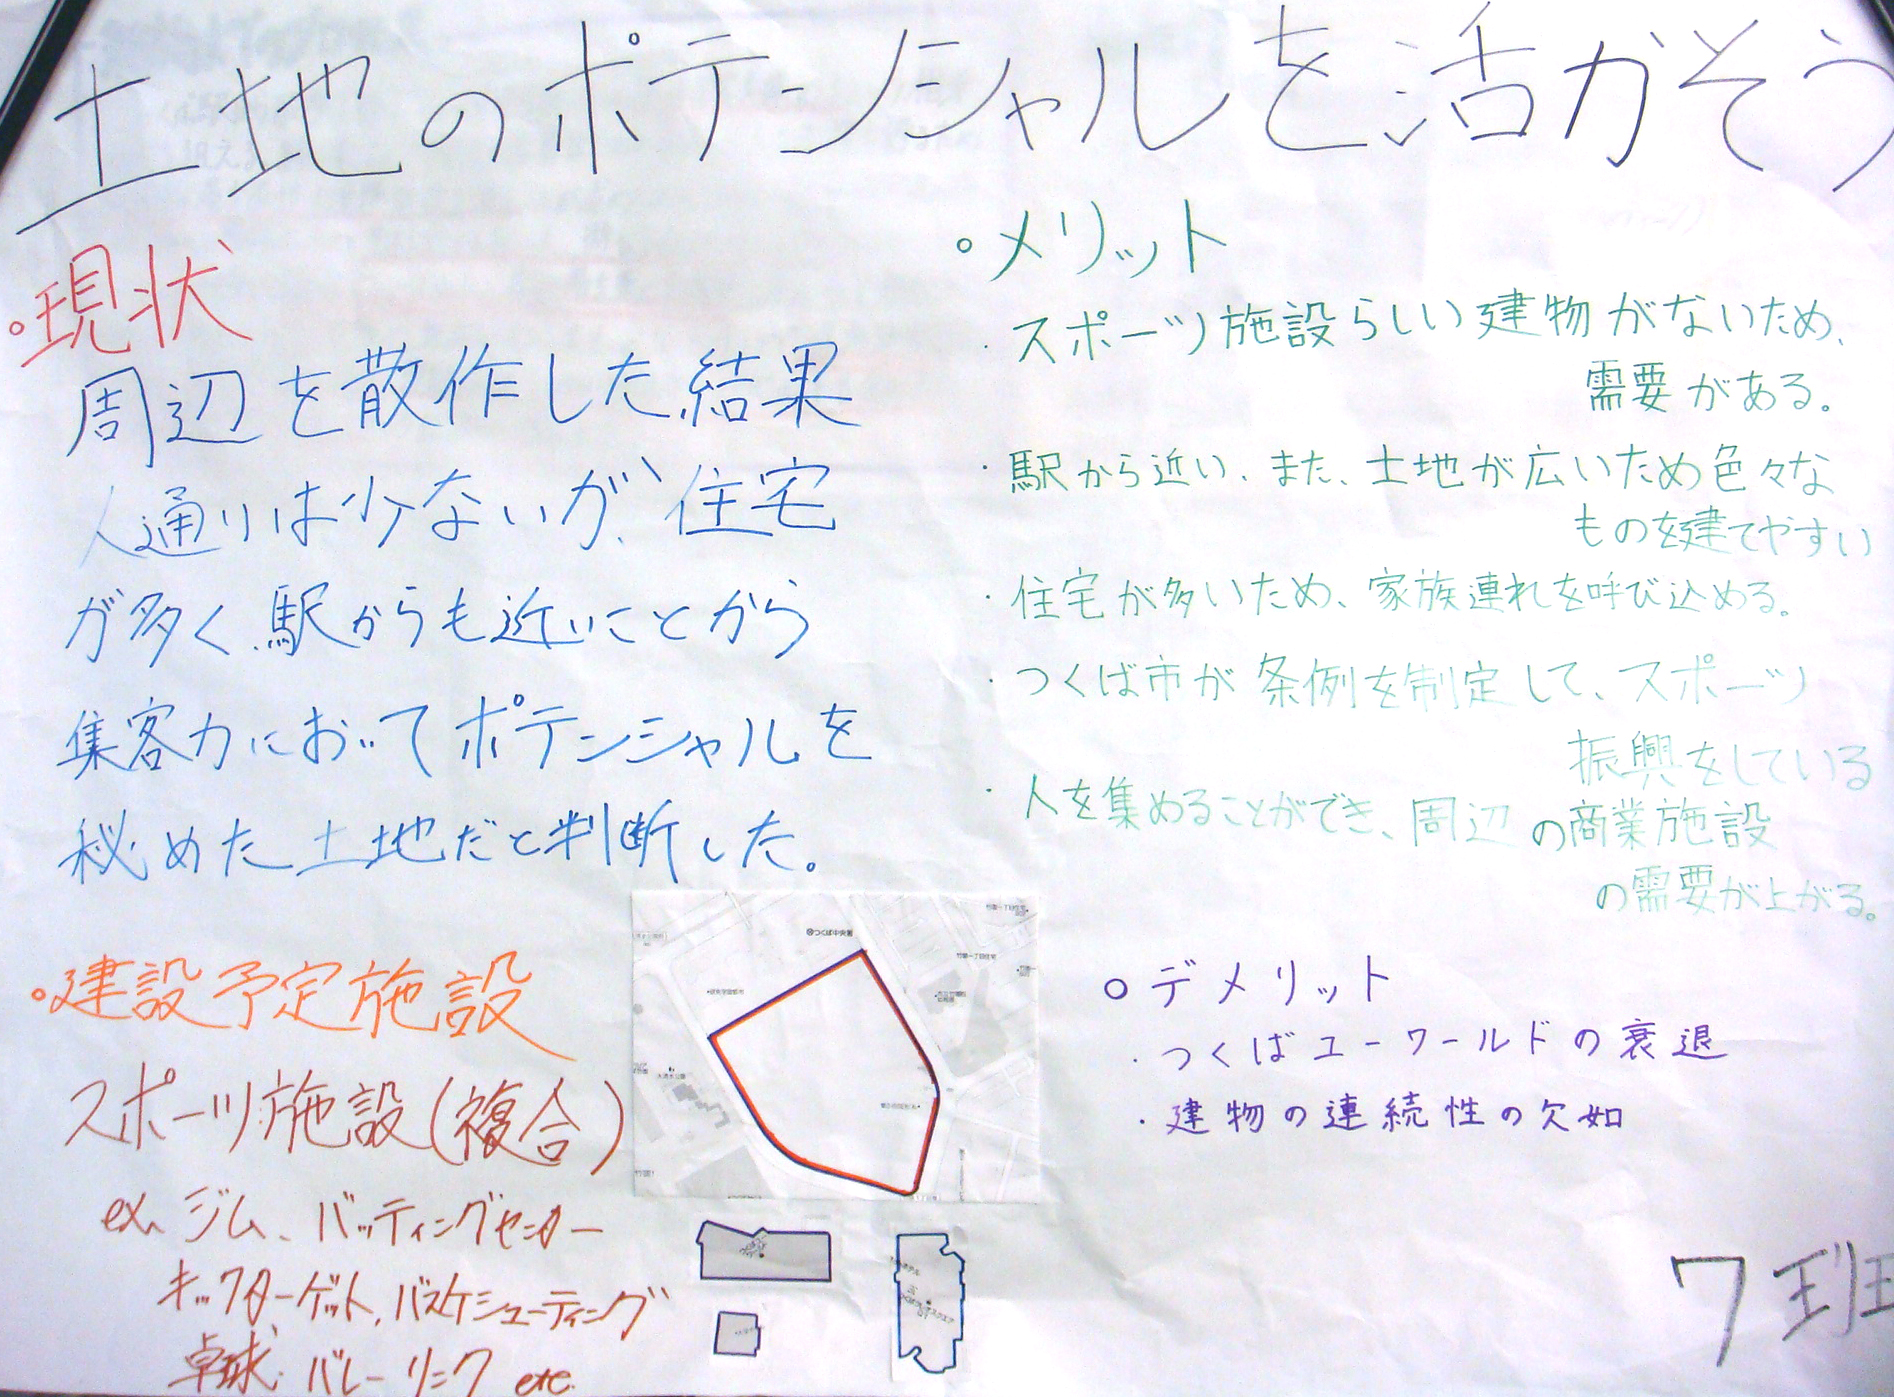 土地のポテンシャルを活かそう
・現状
周辺を散作した結果
人通りは少ないが、住宅
が多く駅からも近いことから
集客力においてポテンシャルを
秘めた土地だと判断した。
・建設予定施設
スポーツ施設(複合)
ex. ジム、バッティングセンター
キックターゲット、バスケシューティング
卓球、バレー リンク etc.
つくば中央署
・メリット
・スポーツ施設らしい建物がないため、
需要がある。
・駅から近い、また、土地が広いため色々な
ものを建てやすい
・住宅が多いため、家族連れを呼び込める。
・つくば市が条例を制定して、スポーツ
振興をしている
・人を集めることができ、周辺の商業施設
の需要が上がる。
○デメリット
・つくばユーワールドの衰退
・建物の連続性の欠如
7班